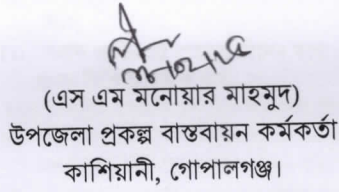 (এস এম মনোয়ার মাহমুদ)
উপজেলা প্রকল্প বাস্তবায়ন কর্মকর্তা
কাশিয়ানী, গোপালগঞ্জ।